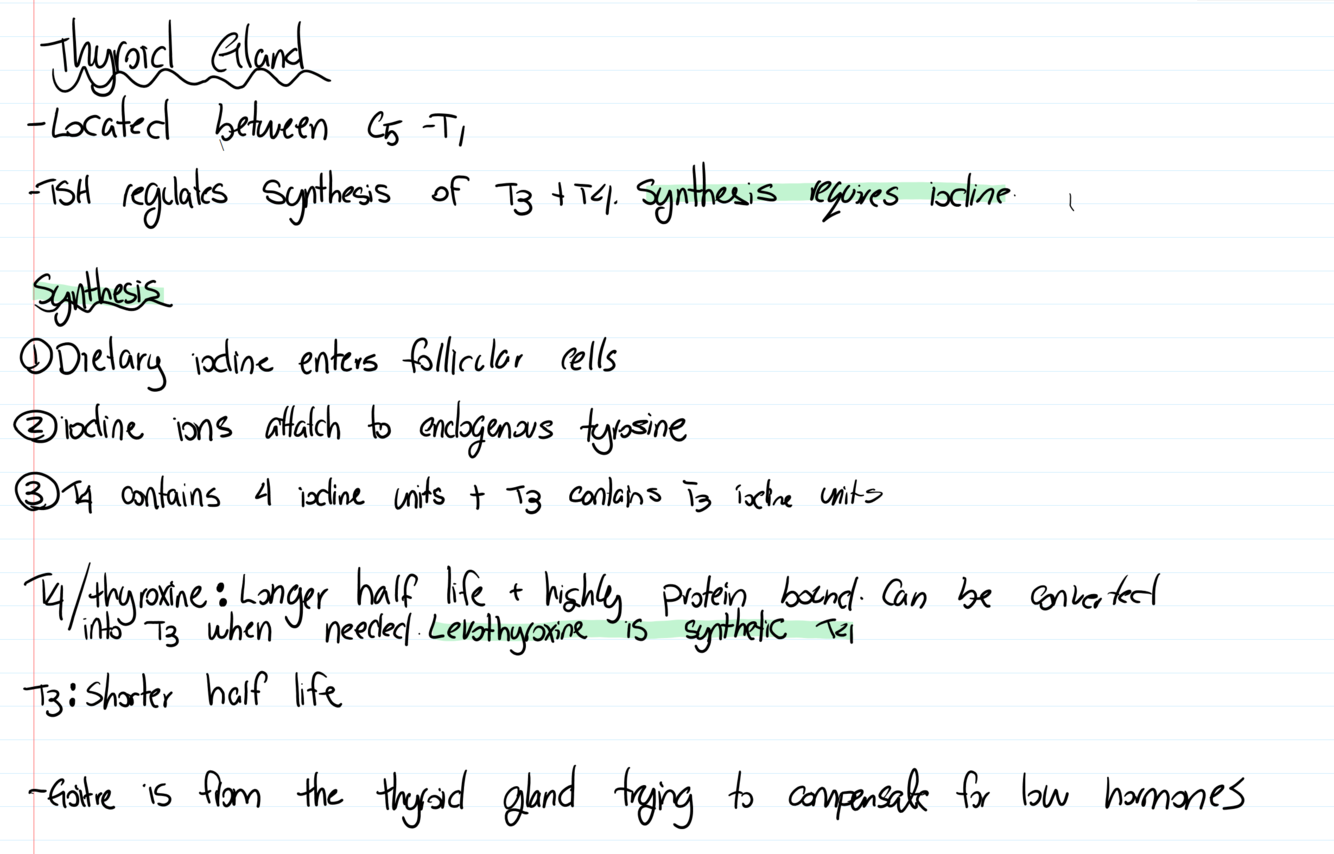 Thyroid Gland
-Located between C5 -T1
-TSH regulates synthesis of T3 + T4. Synthesis requires iodine.
Synthesis
① Dietary iodine enters follicular cells
② iodine ions attatch to endogenous tyrosine
③ T4 contains 4 iodine units + T3 contains T3 iodine units
T4/thyroxine: Longer half life + highly protein bound. Can be converted
into T3 when needed. Levothyroxine is synthetic T4
T3: Shorter half life
-Goitre is from the thyroid gland trying to compensate for low hormones